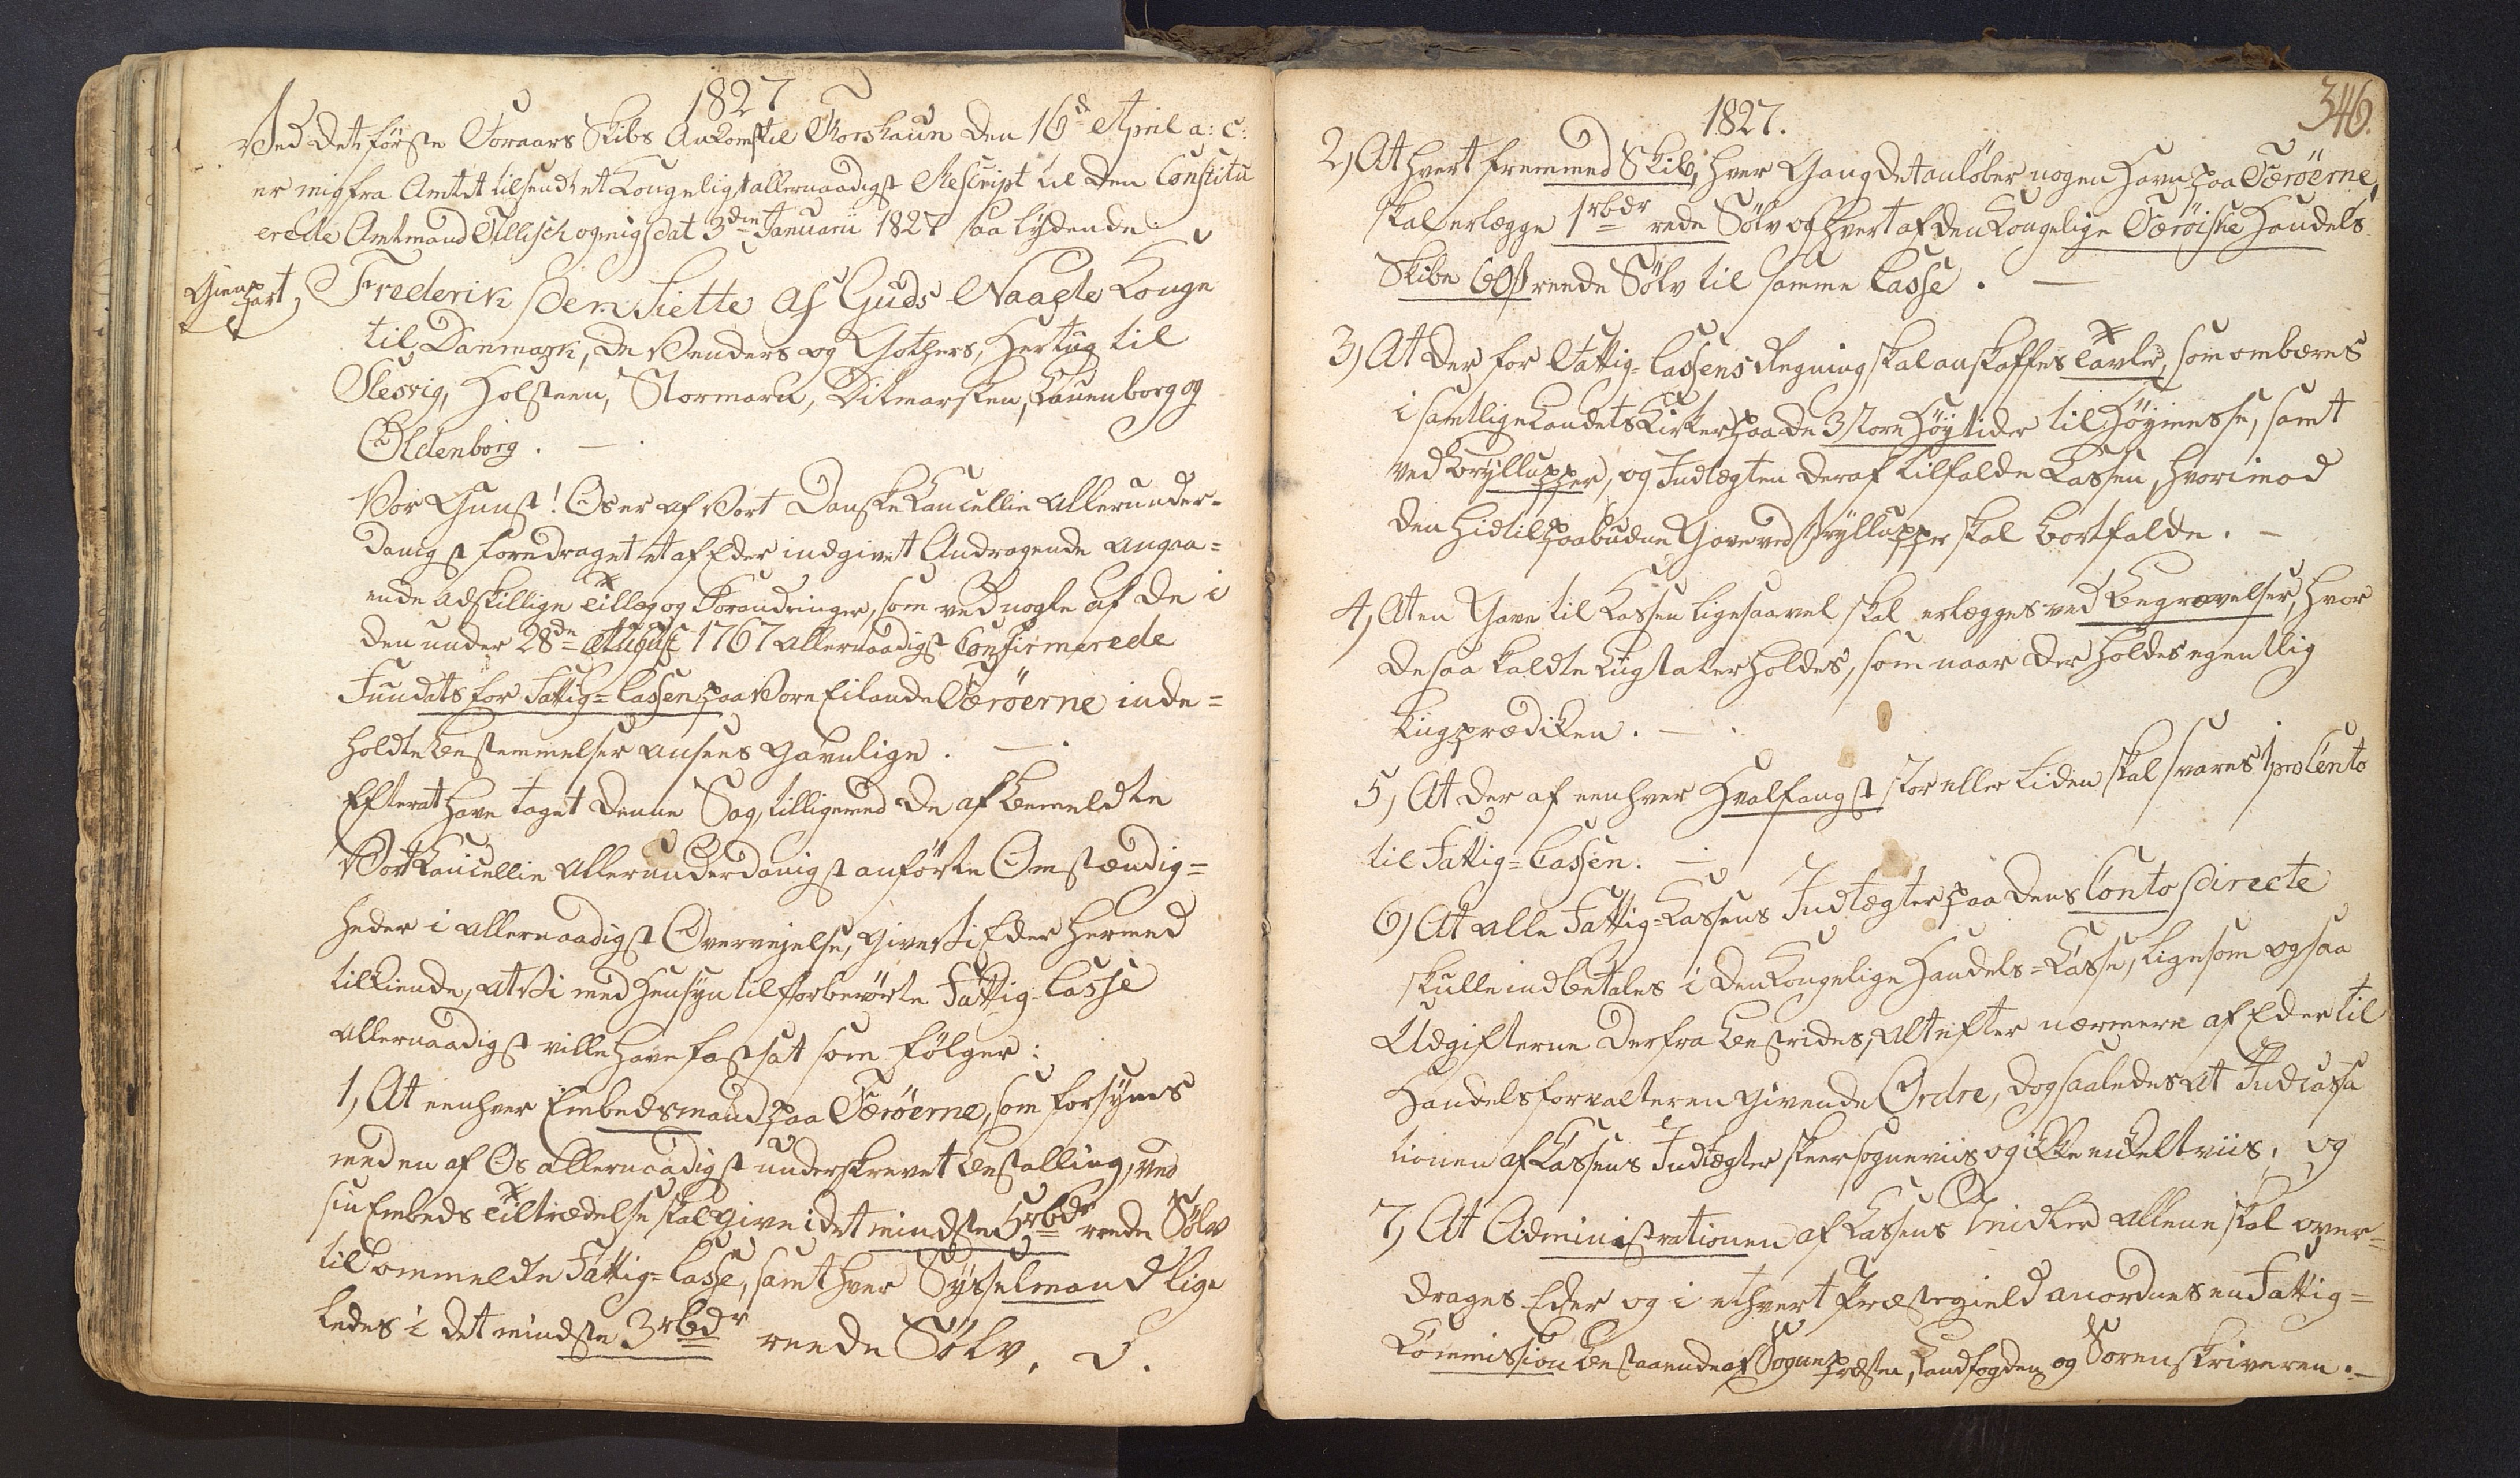 1827
Ved det første Foraars Skibs Ankomst til Thorshaun den 16d April a: c:
er mig fra Amtet tilsendt et Kongeligt allernaadigst Rescript til den Constitu
erede Amtmand Tillisch og mig dat 3die Januarii 1827 saa lydende:
Gienpart, Frederik den Siette af Guds Naade Konge
til Danmark, de Venders og Gothers, Hertug til
Slesvig, Holsteen, Stormarn, Ditmarsken, Lauenborg og
Oldenborg. —.
Vor Gunst! Os er af Vort Danske Cancellie allerunder-
danigst foredraget et af Eder indgivet Andragende angaa=
ende adskillige Tillæg og Forandringer, som ved nogle af de i
den under 28de August 1767 allernaadigst Confirmerede
Fundats for Fattig=Cassen paa Vore Eilande Færöerne inde=
holdte Bestemmelser ansees gavnlige. —.
Efterat have taget denne Sag, tilligemed de af bemeldte
Vort Cancellie allerunderdanigst anførte Omstændig=
heder i allernaadigst Overvejelse, give Vi Eder hermed
tilkiende, at Vi med Hensyn til forberørte Fattig-Casse
allernaadigst ville have fastsat som følger:
1, At eenhver Embedsmand paa Færöerne, som forsynes
med en af Os allernaadigst underskrevet Bestalling, ved
sin Embeds Tiltrædelse skal give i det mindste 5 rbdr rede Sölv
til ommeldte Fattig=Casse, samt hver Sysselmand lige
ledes i det mindste 3 rbdr reede Sölv.
346.
1827.
2, At hvert fremmed Skib, hver Gang det anlöber nogen Havn paa Færöerne,
skal erlægge 1 rbdr rede Sölv og hvert af den Kongelige Færöiske Handels
Skibe 60 ß reede Sölv til samme Casse. —
3, At der for Fattig=Cassens Regning skal anskaffes Tavler, som ombæres
i samtlige Landets Kirker paa de 3 store Höytider til Höymesse, samt
ved Brylluppper, og Indtægten deraf tilfalde Kassen, hvorimod
den hidtil paabudne Gave ved Brylluppper skal bortfalde. —
4, At en Gave til Kassen ligesaavel skal erlægges ved Begravelser, hvor
de saa kaldte Liigtaler holdes, som naar der holdes egentlig
Liigprædiken. —.
5, At der af eenhver Hvalfangst stor eller liden skal svares 1 pro Cento
til Fattig=Cassen. —
6, At alle Fattig=Kassens Indtægter paa dens Conto directe
skulle indbetales i den Kongelige Handels=Casse, ligesom ogsaa
Udgifterne derfra bestrides, alt efter nærmere af Eder til
Handelsforvalteren givende Ordre, dog saaledes at Indcassa
tionen af Kassens Indtægter skeer sogneviis og ikke enkeltviis; og
7, At Administrationen af Kassens Midler allene skal over=
drages Eder og i ethvert Præstegield anordnes en Fattig=
Commission bestaaende af Sognepræsten, Landfogden og Sorenskriveren. —